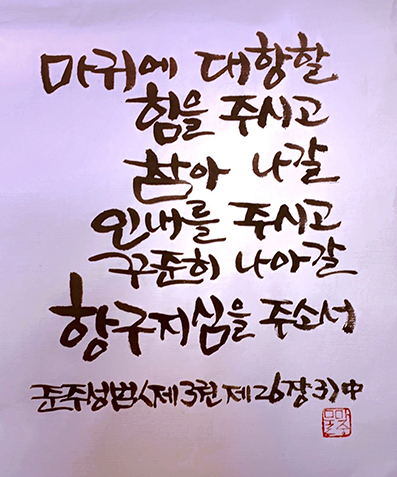 마귀에 대항할
힘을 주시고
참아 나갈
인내를 주시고
꾸준히 나아갈
항구지심을 주소서
준주성범<제3권 제26장3>中